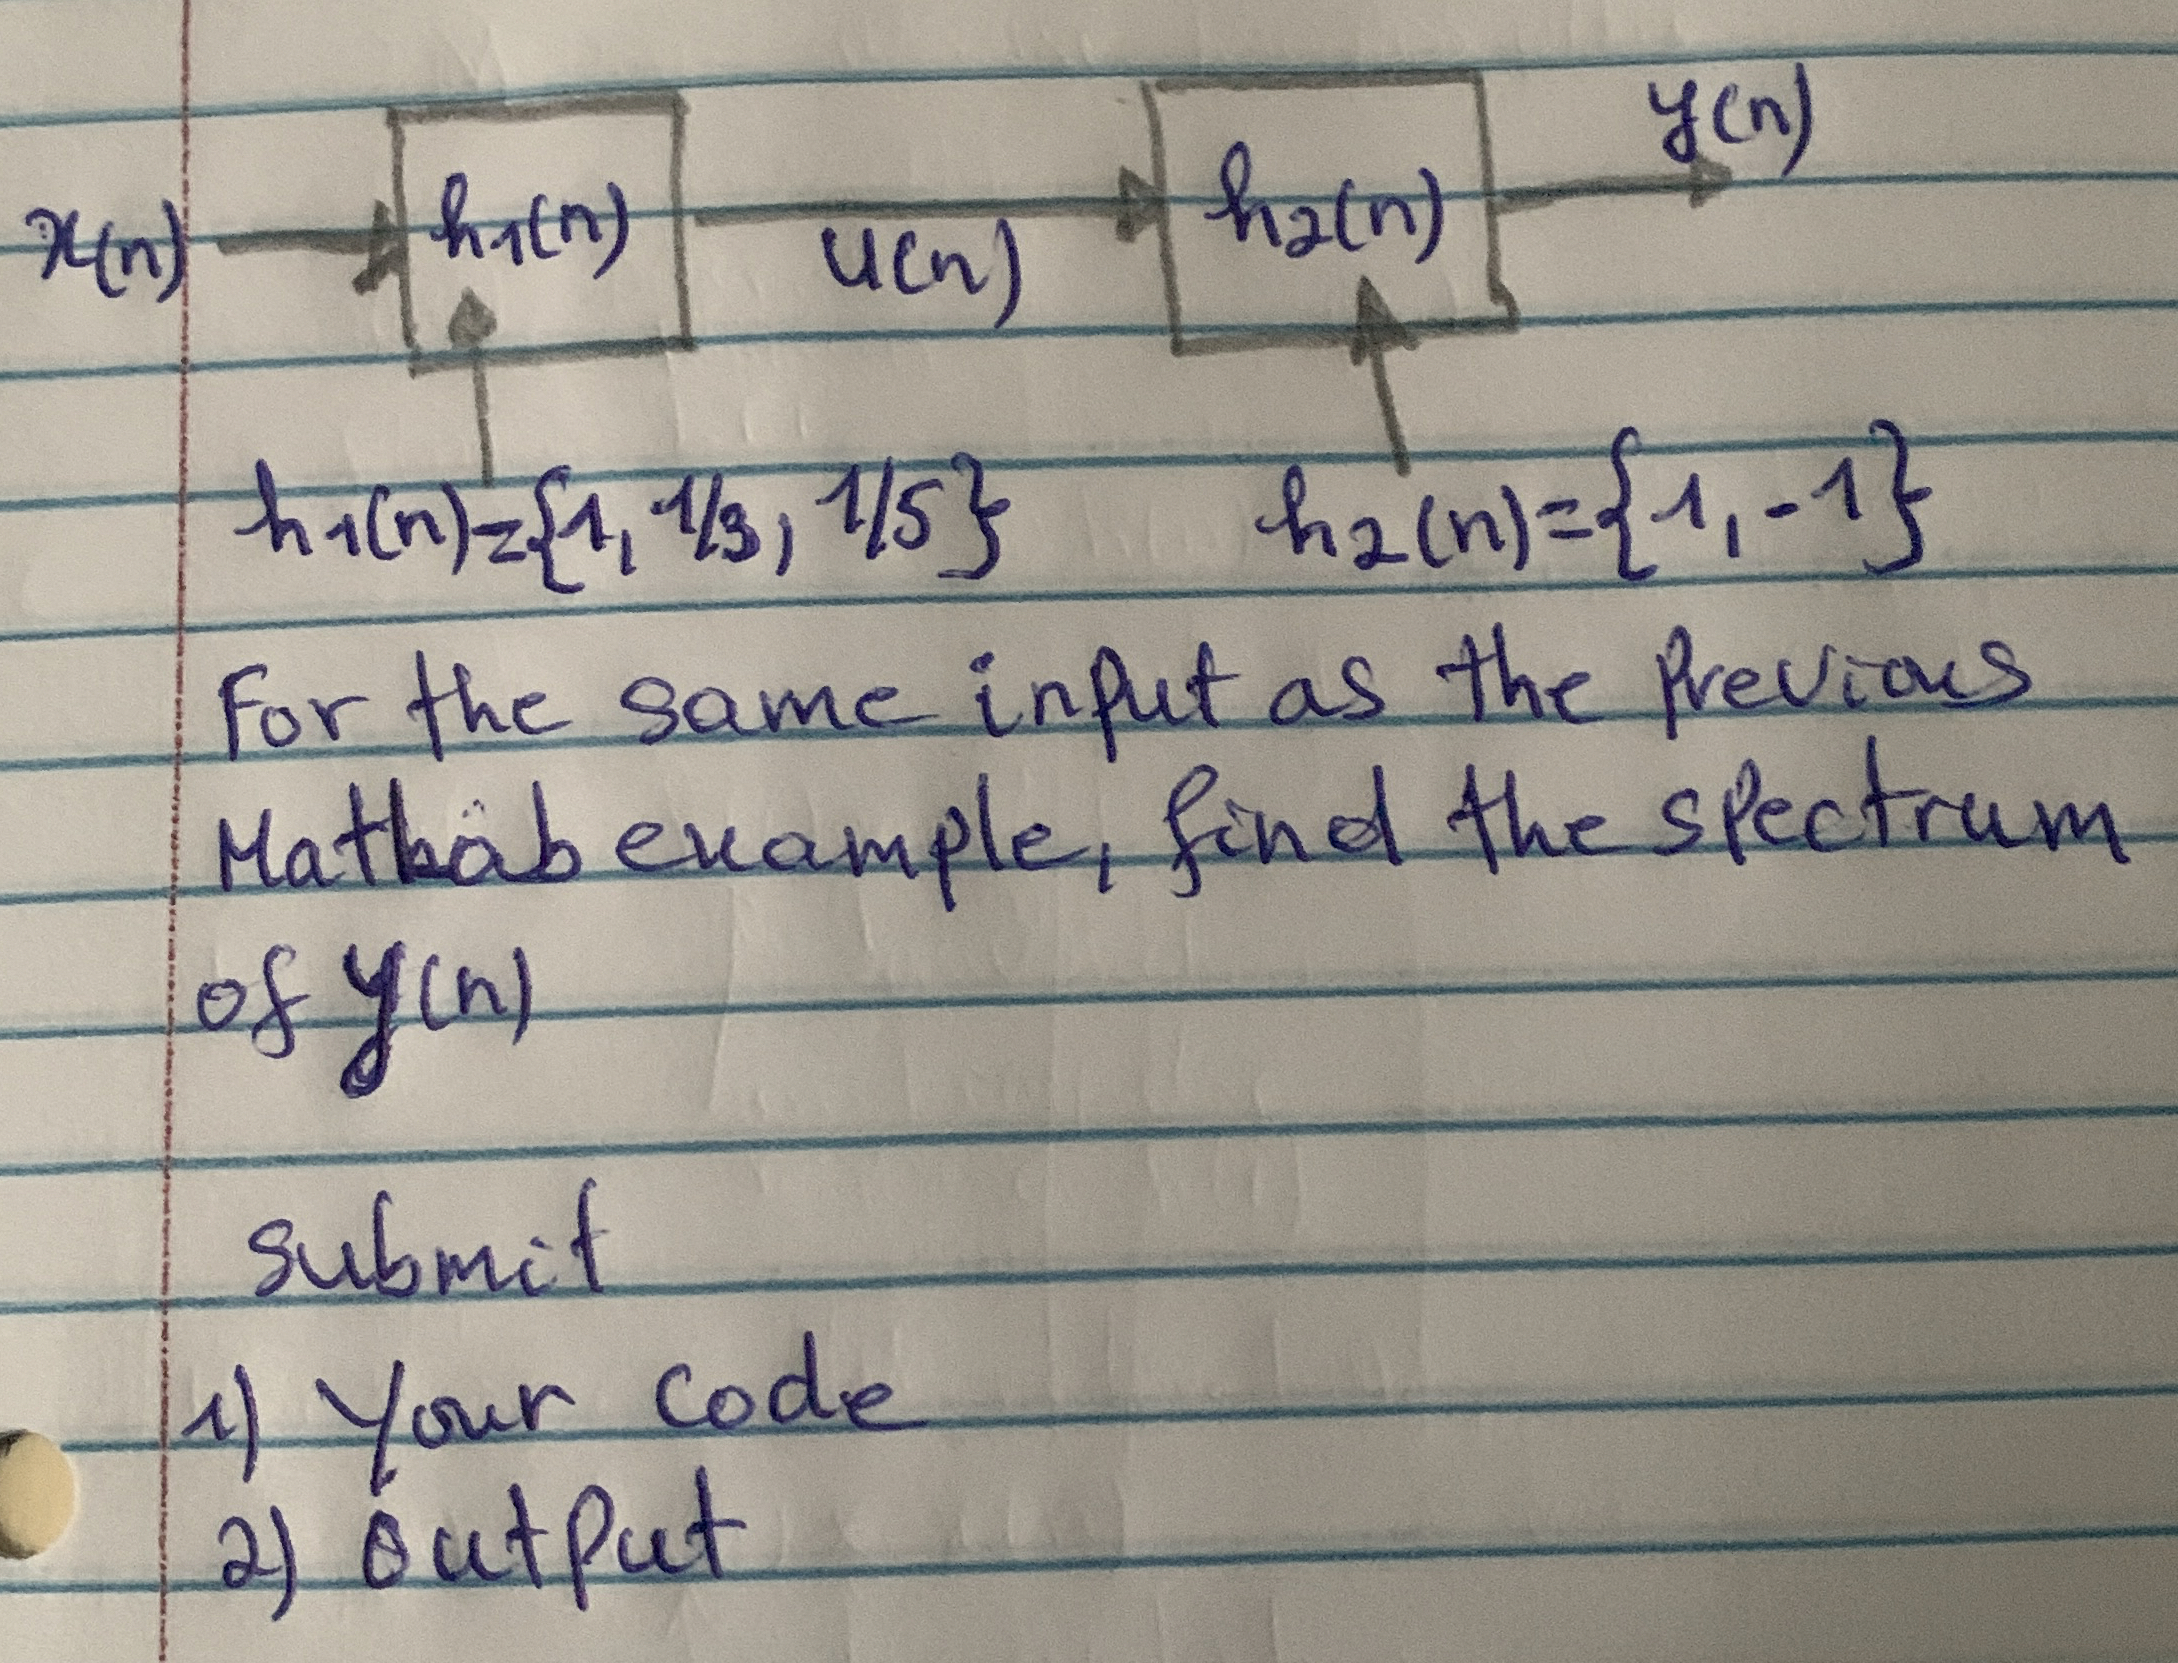 x(n) h1(n) u(n) h2(n) y(n)
h1(n)={1, 1/3, 1/5} h2(n)={1, -1}
For the same input as the previous
Matlab example, find the spectrum
of y(n)
Submit
1) Your code
2) Output